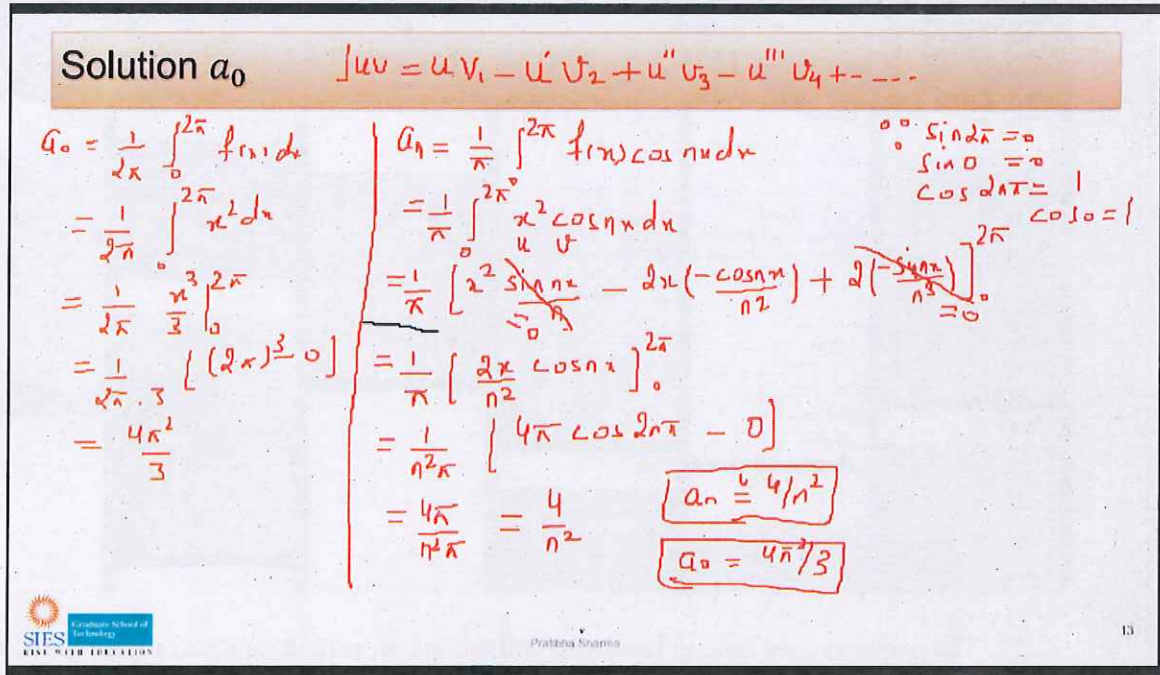 Solution a₀
∫uv = u v₁ − u' v₂ + u'' v₃ − u''' v₄ + - ----
a₀ = 1/2π ∫₀^2π f(x) dx
= 1/2π ∫₀^2π x² dx
= 1/2π x³/3 |₀^2π
= 1/2π.3 [(2π)³ − 0]
= 4π²/3
aₙ = 1/π ∫₀^2π f(x) cos nx dx
= 1/π ∫₀^2π x² cos nx dx
u v
= 1/π [x² sin nx/n − 2x(−cos nx/n²) + 2(−sin nx/n³)]₀^2π
=0 =0
= 1/π [2x/n² cos nx]₀^2π
= 1/n²π [4π cos 2nπ − 0]
= 4π/n²π = 4/n²
∵ sin 2π = 0
sin 0 = 0
cos 2nπ = 1
cos 0 = 1
aₙ = 4/n²
a₀ = 4π²/3
SIES Graduate School of Technology
RISE WITH EDUCATION
Pratibha Sharma
13